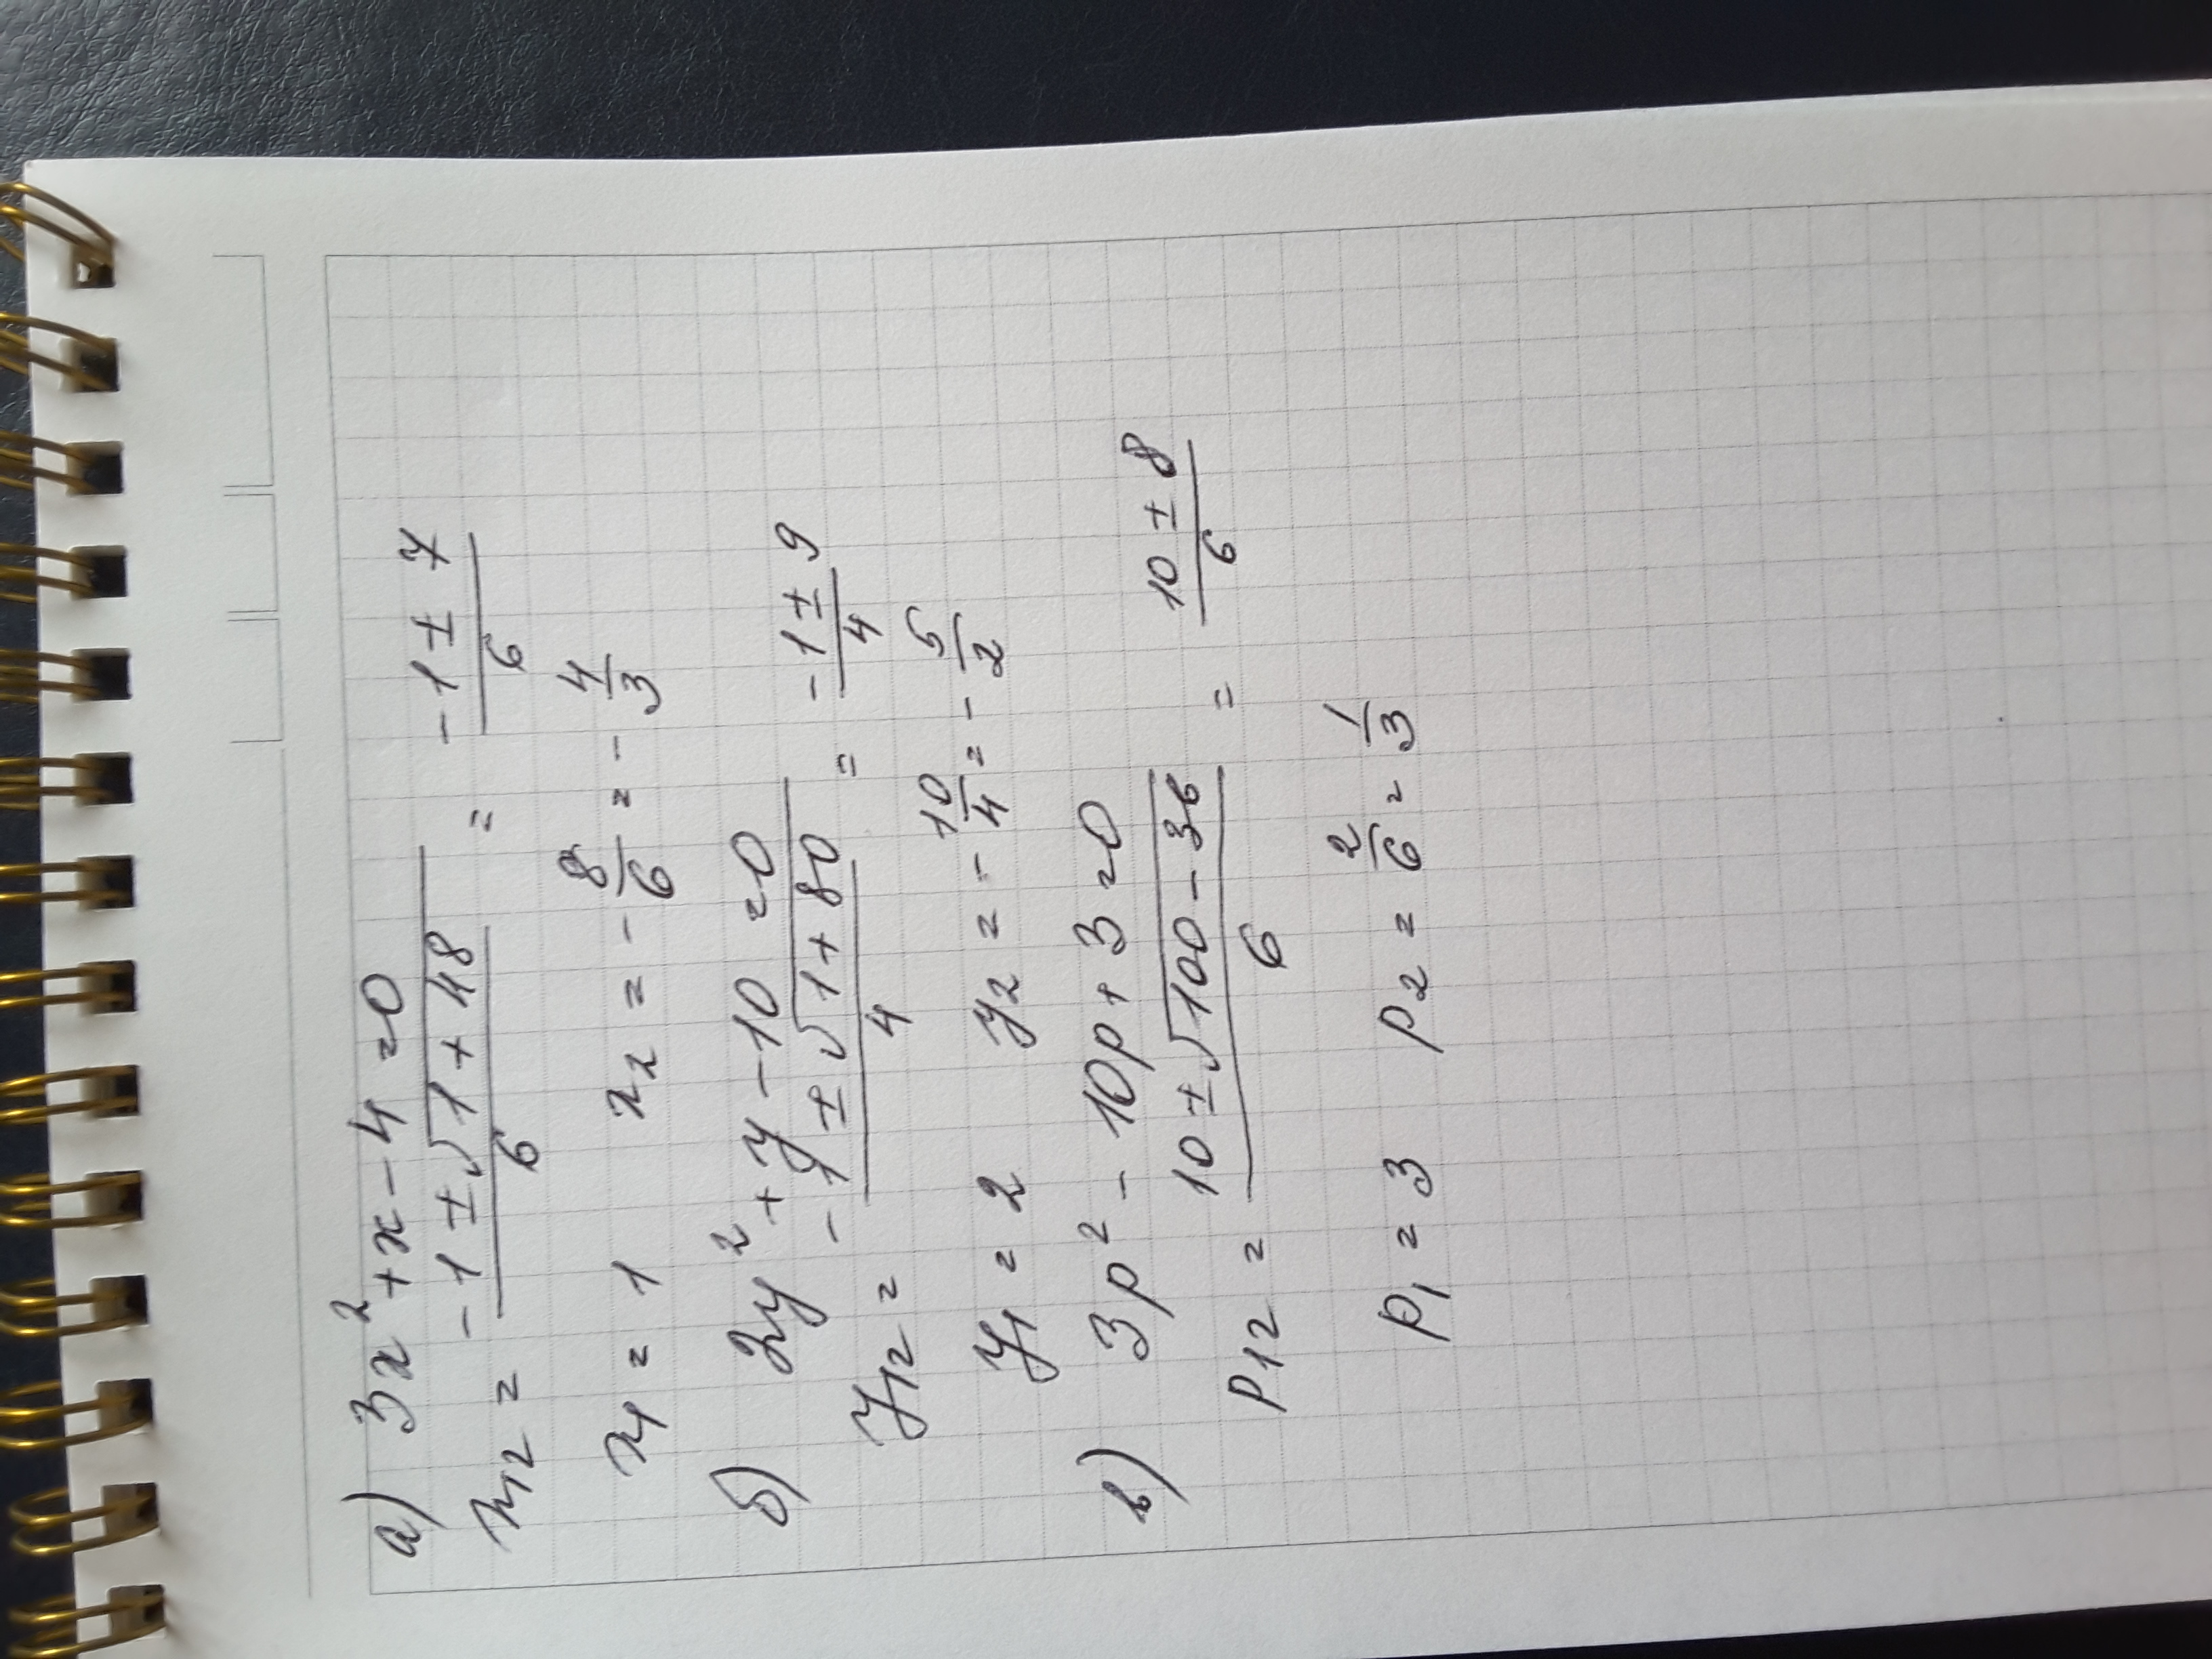 а) 3x² + x - 4 = 0
x₁₂ = (-1 ± √(1 + 48))/6 = (-1 ± 7)/6
x₁ = 1 x₂ = -8/6 = -4/3
б) 2y² + y - 10 = 0
y₁₂ = (-1 ± √(1 + 80))/4 = (-1 ± 9)/4
y₁ = 2 y₂ = -10/4 = -5/2
в) 3p² - 10p + 3 = 0
p₁₂ = (10 ± √(100 - 36))/6 = (10 ± 8)/6
p₁ = 3 p₂ = 2/6 = 1/3